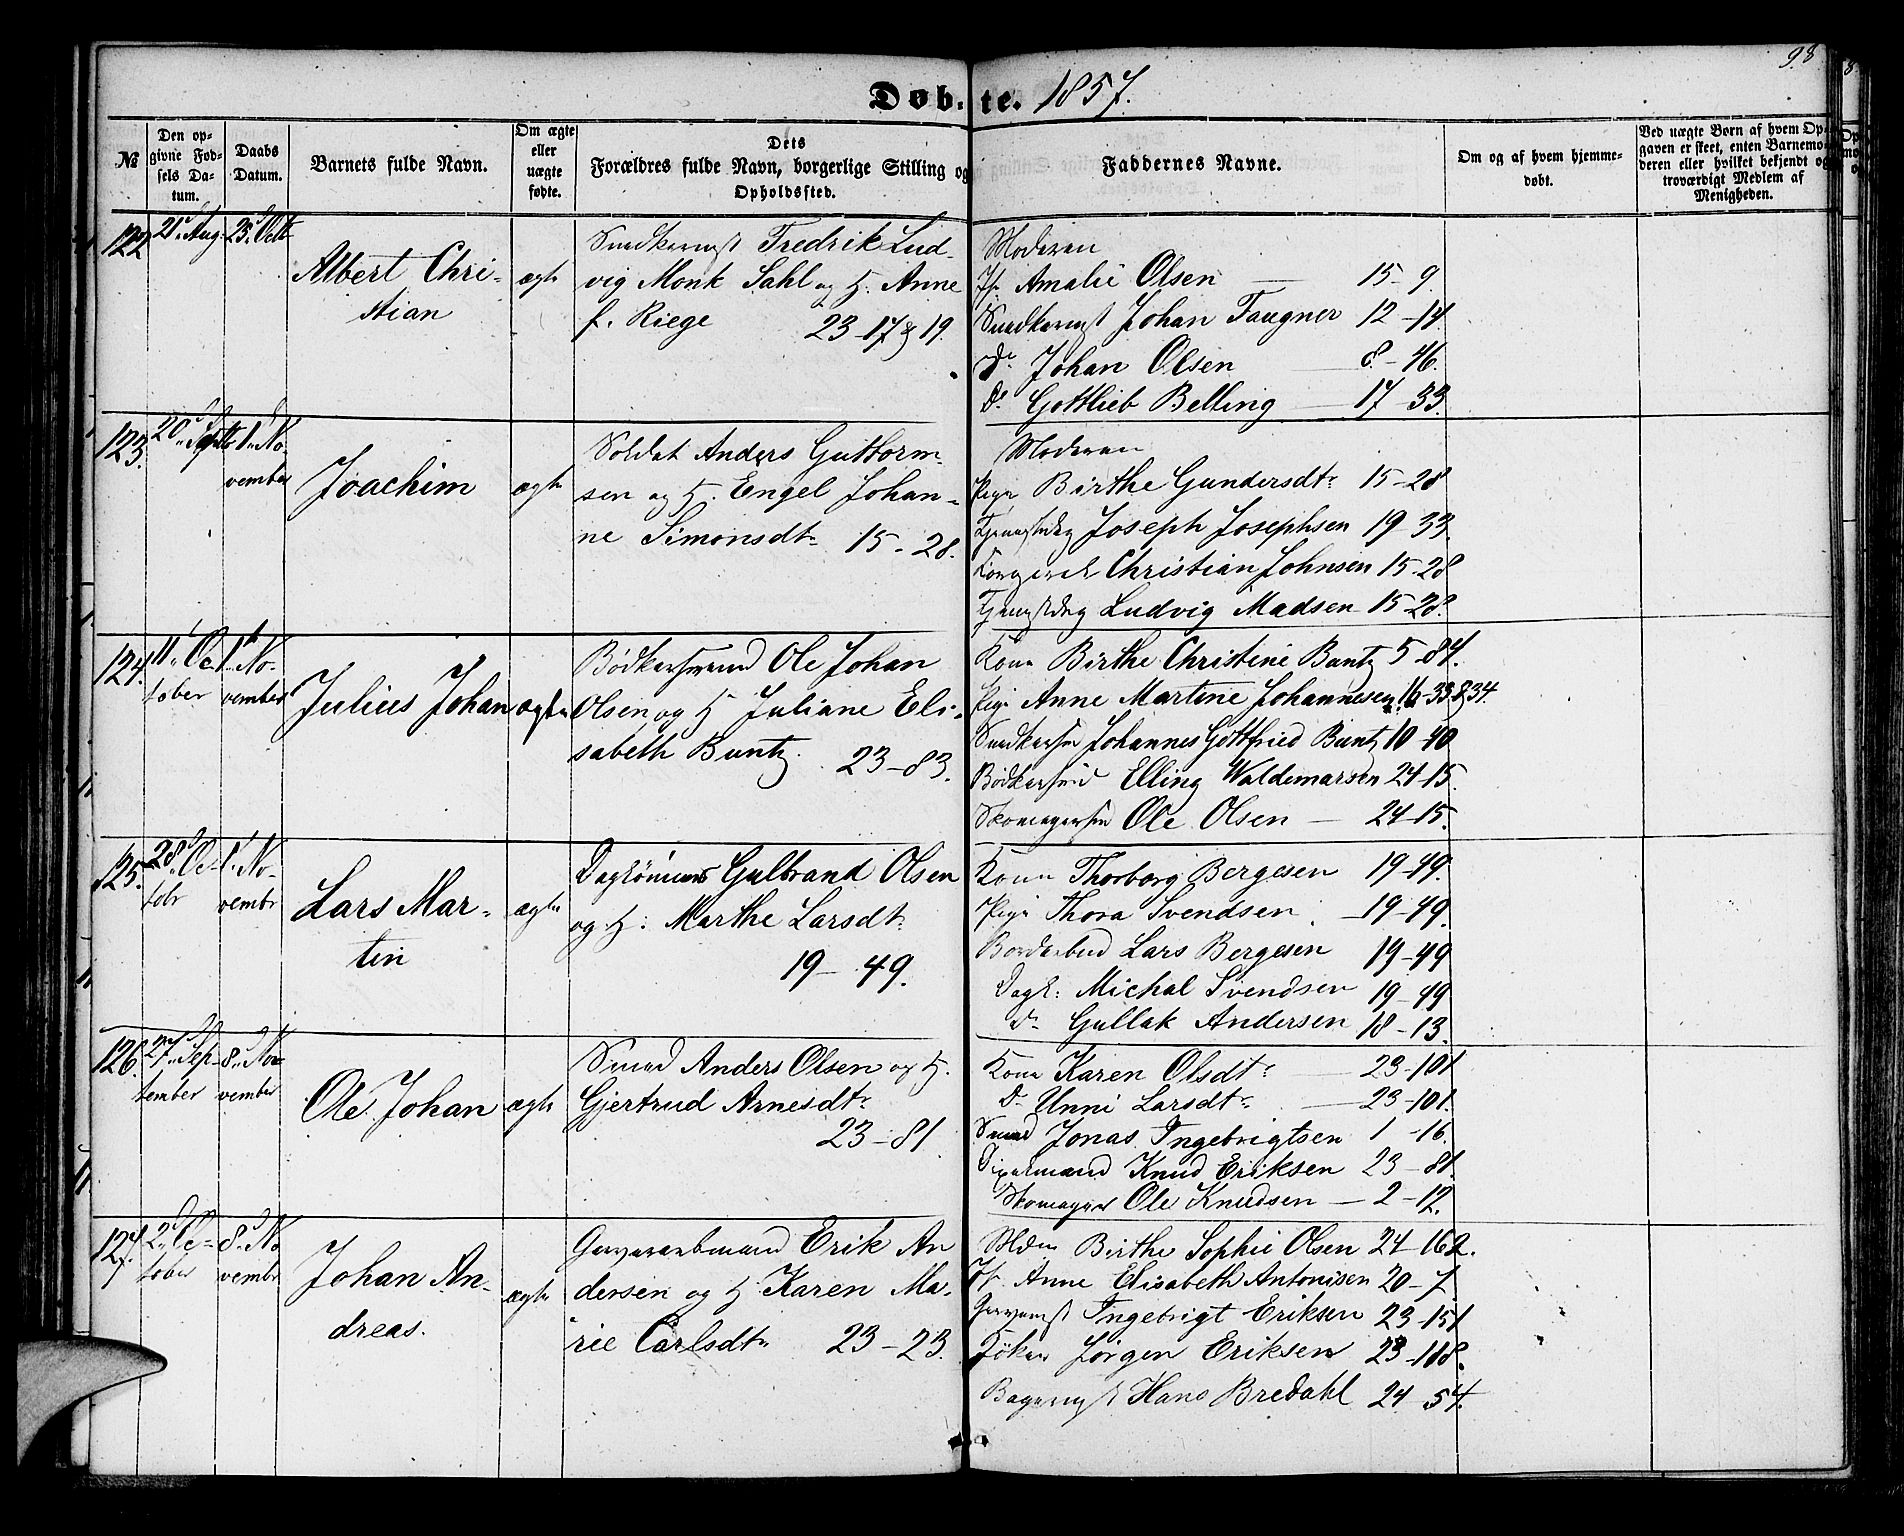 98
Døbte. 1857.
№
Den opgivne Fødsels Datum.
Daabs Datum.
Barnets fulde Navn.
Om ægte eller uægte fødte.
Dets Forældres fulde Navn, borgerlige Stilling og Opholdssted.
Faddernes Navne.
Om og af hvem hjemmedøbt.
Ved uægte Børn af hvem Opgaven er skeet, enten Barnemoderen eller hvilket bekjendt og troværdigt Medlem af Menigheden.
122
21. Aug.
25. Octb
Albert Chri-
stian
ægte
Snedkermst Fredrik Lud-
vig Monk Sahl og H. Anne
f. Riege 23-17 & 19.
Moderen
Jfr Amalie Olsen 15-9
Snedkermst Johan Faugner 12-14
Do Johan Olsen 8-46.
Do Gottlieb Belling 17-33.
123.
20. Septb
1. No-
vember
Joachim
ægte
Soldat Anders Guttorm-
sen og H. Engel Johan-
ne Simonsdtr 15-28.
Moderen
Pige Birthe Gundersdtr 15-28
Joseph Josephsen 19-33.
Christian Johnsen 15-28
Ludvig Madsen 15-28.
124.
11. Oc-
tober
1. No-
vember
Julius Johan
ægte
Bødkersvend Ole Johan
Olsen og H Juliane Eli-
sabeth Buntz. 23-83.
Kone Birthe Christine Buntz 5-84.
Pige Anne Martine Johannesen 16-33 & 34.
Snedkersv Johannes Gottfried Buntz 10-40
Bødkersvd Elling Waldemarsen 24-15.
Skomagersv Ole Olsen 24-15.
125.
28. Oc-
tobr
1. No-
vembr
Lars Mar-
tin
ægte
Daglønner Gulbrand Olsen
og H: Marthe Larsdtr
19-49.
Kone Thorborg Bergesen 19-49.
Pige Thora Svendsen 19-49.
Lars Bergesen 19-49
Dagl: Michal Svendsen 19-49
Do Gullak Andersen 18-13.
126.
27. Sep-
tember
8. No-
vember
Ole Johan
ægte
Smed Anders Olsen og H.
Gjertrud Arnesdtr
23-81.
Kone Karen Olsdtr 23-101
Do Unni Larsdtr 23-101.
Smed Jonas Ingebrigtsen 1-16.
Knud Eriksen 23-81.
Skomager Ole Knudsen 2-12.
127.
2. Oc-
tober
8. No-
vembr
Johan An-
dreas.
ægte
Erik An
dersen og H Karen Ma-
rie Carlsdtr 23-23.
Birthe Sophie Olsen 24-162.
Jfr. Anne Elisabeth Antonisen 20-7.
Ingebrigt Eriksen 23-151
Jørgen Eriksen 23-118.
Bagermst Hans Bredahl 24-54.